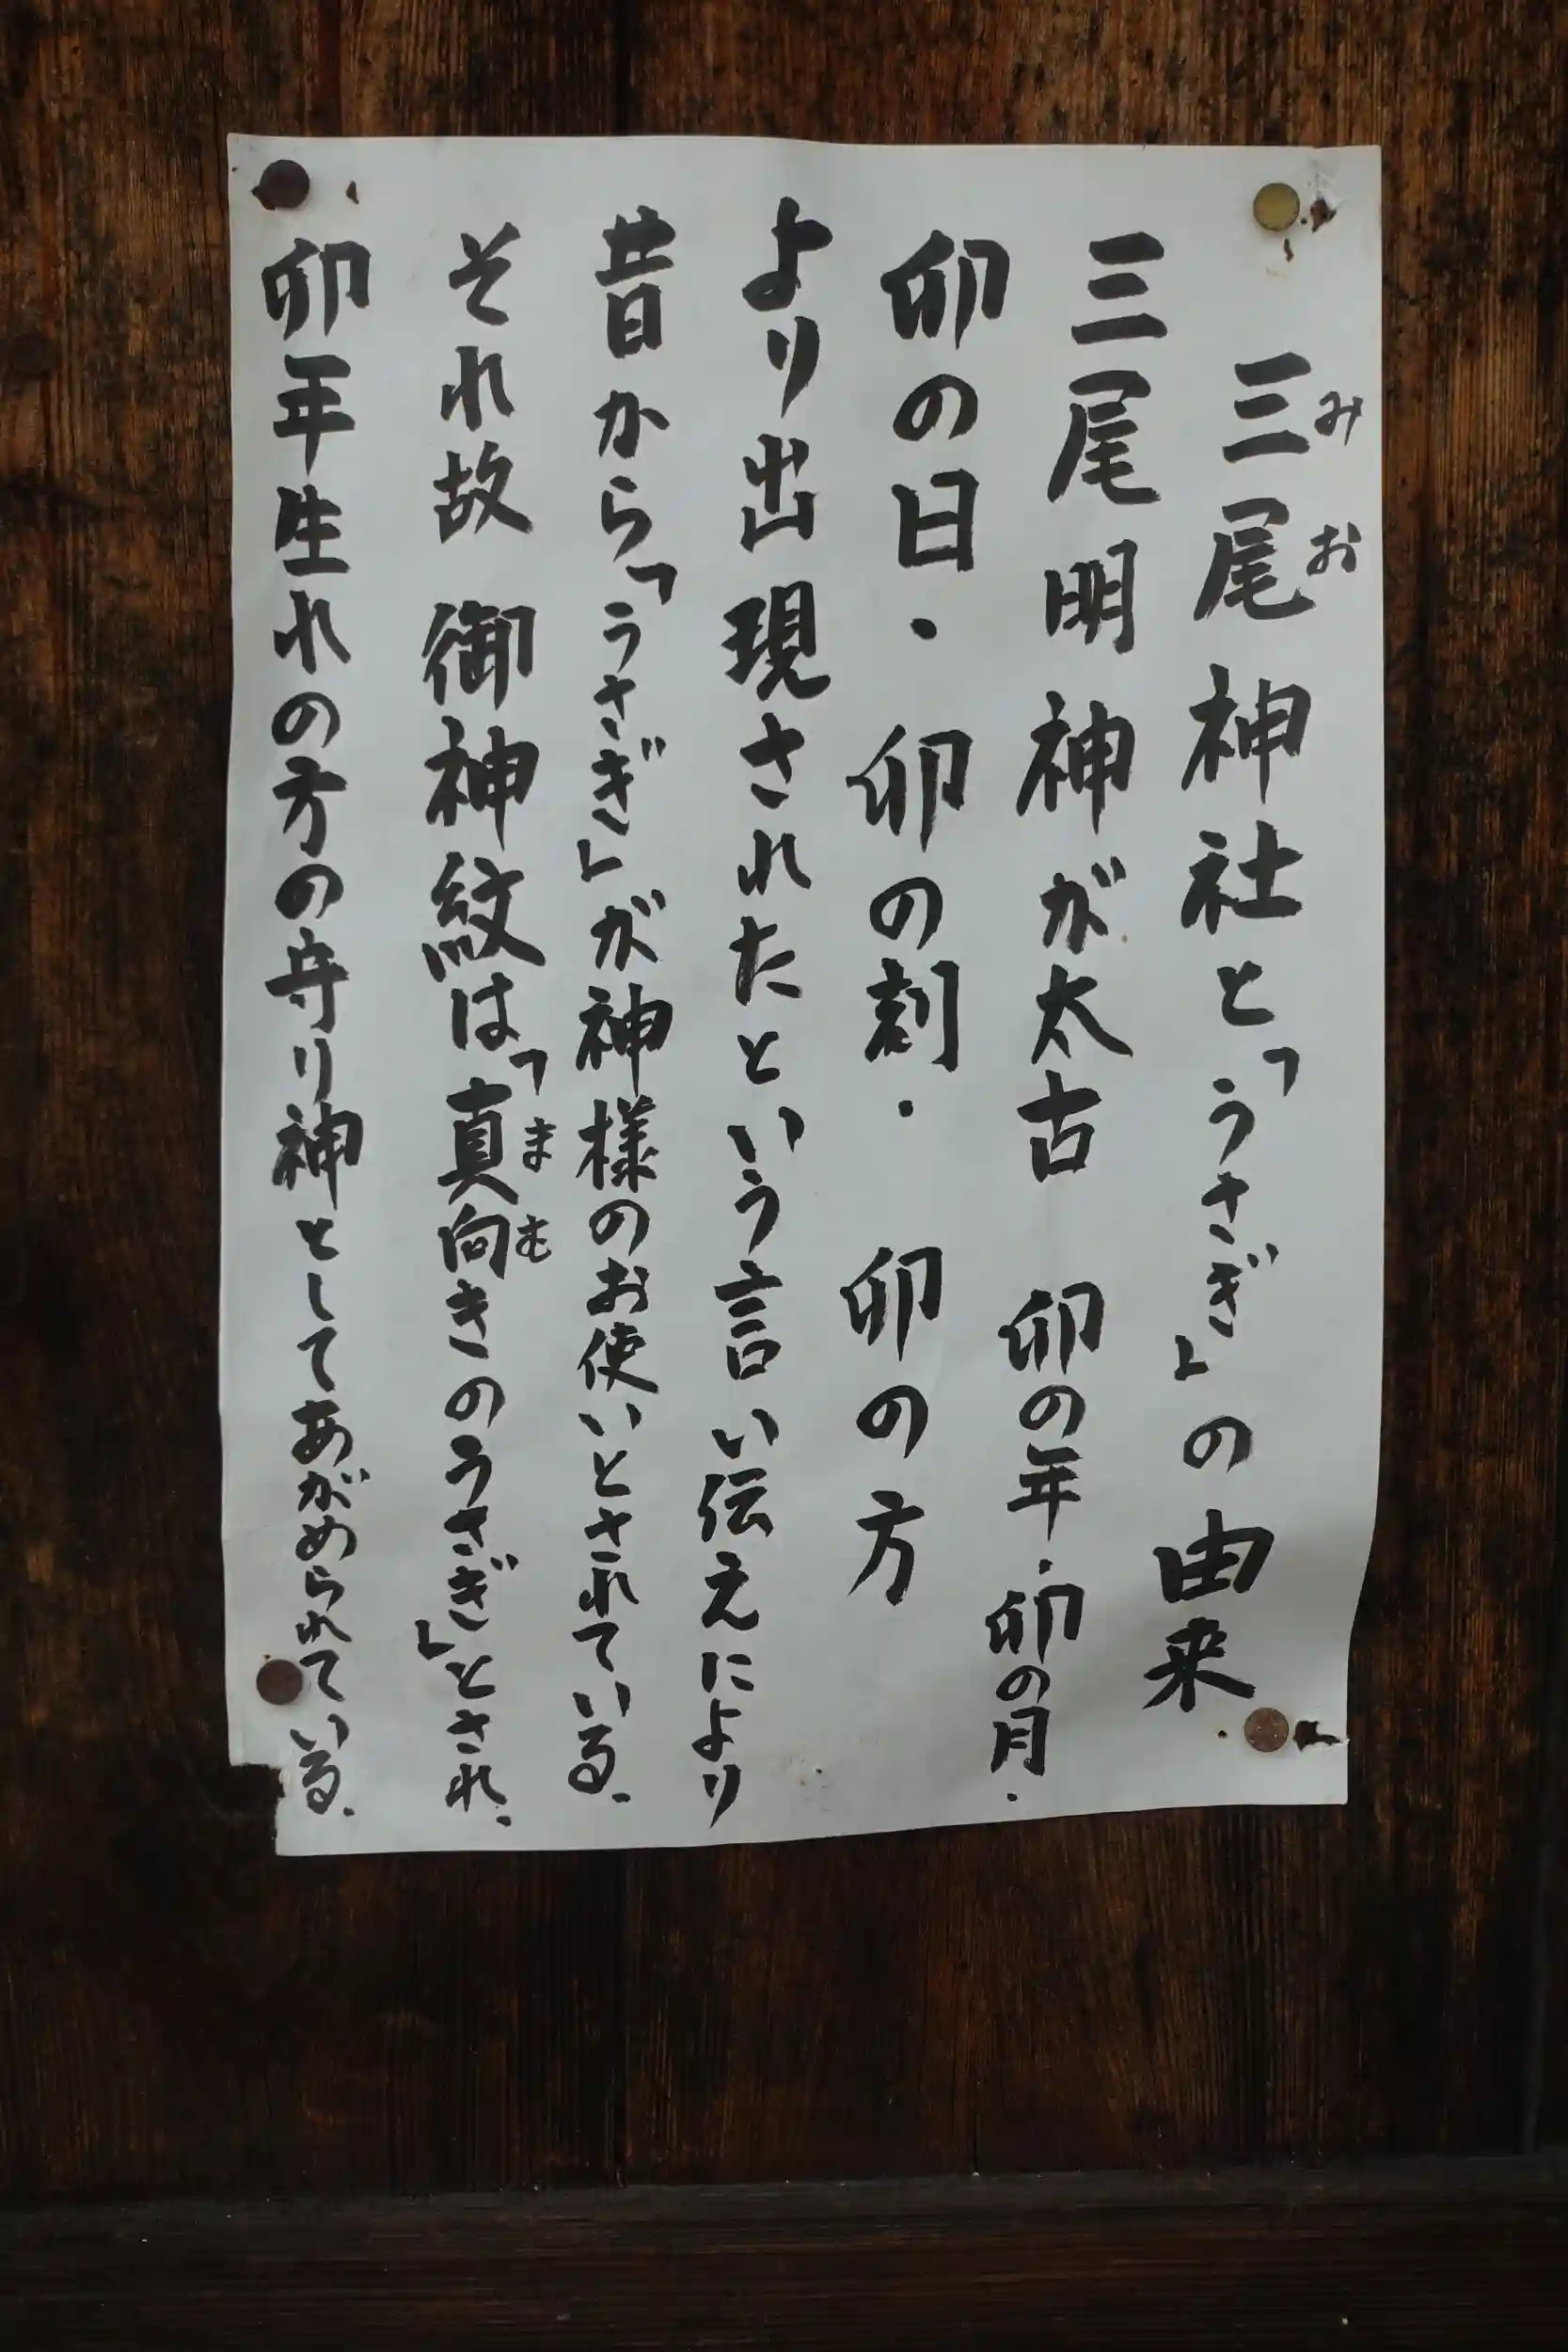 三尾神社と「うさぎ」の由来
みお
三尾明神が太古 卯の年・卯の月・
卯の日・卯の刻・卯の方
より出現されたという言い伝えにより
昔から「うさぎ」が神様のお使いとされている.
それ故 御神紋は「真向きのうさぎ」とされ.
まむ
卯年生れの方の守り神としてあがめられている.